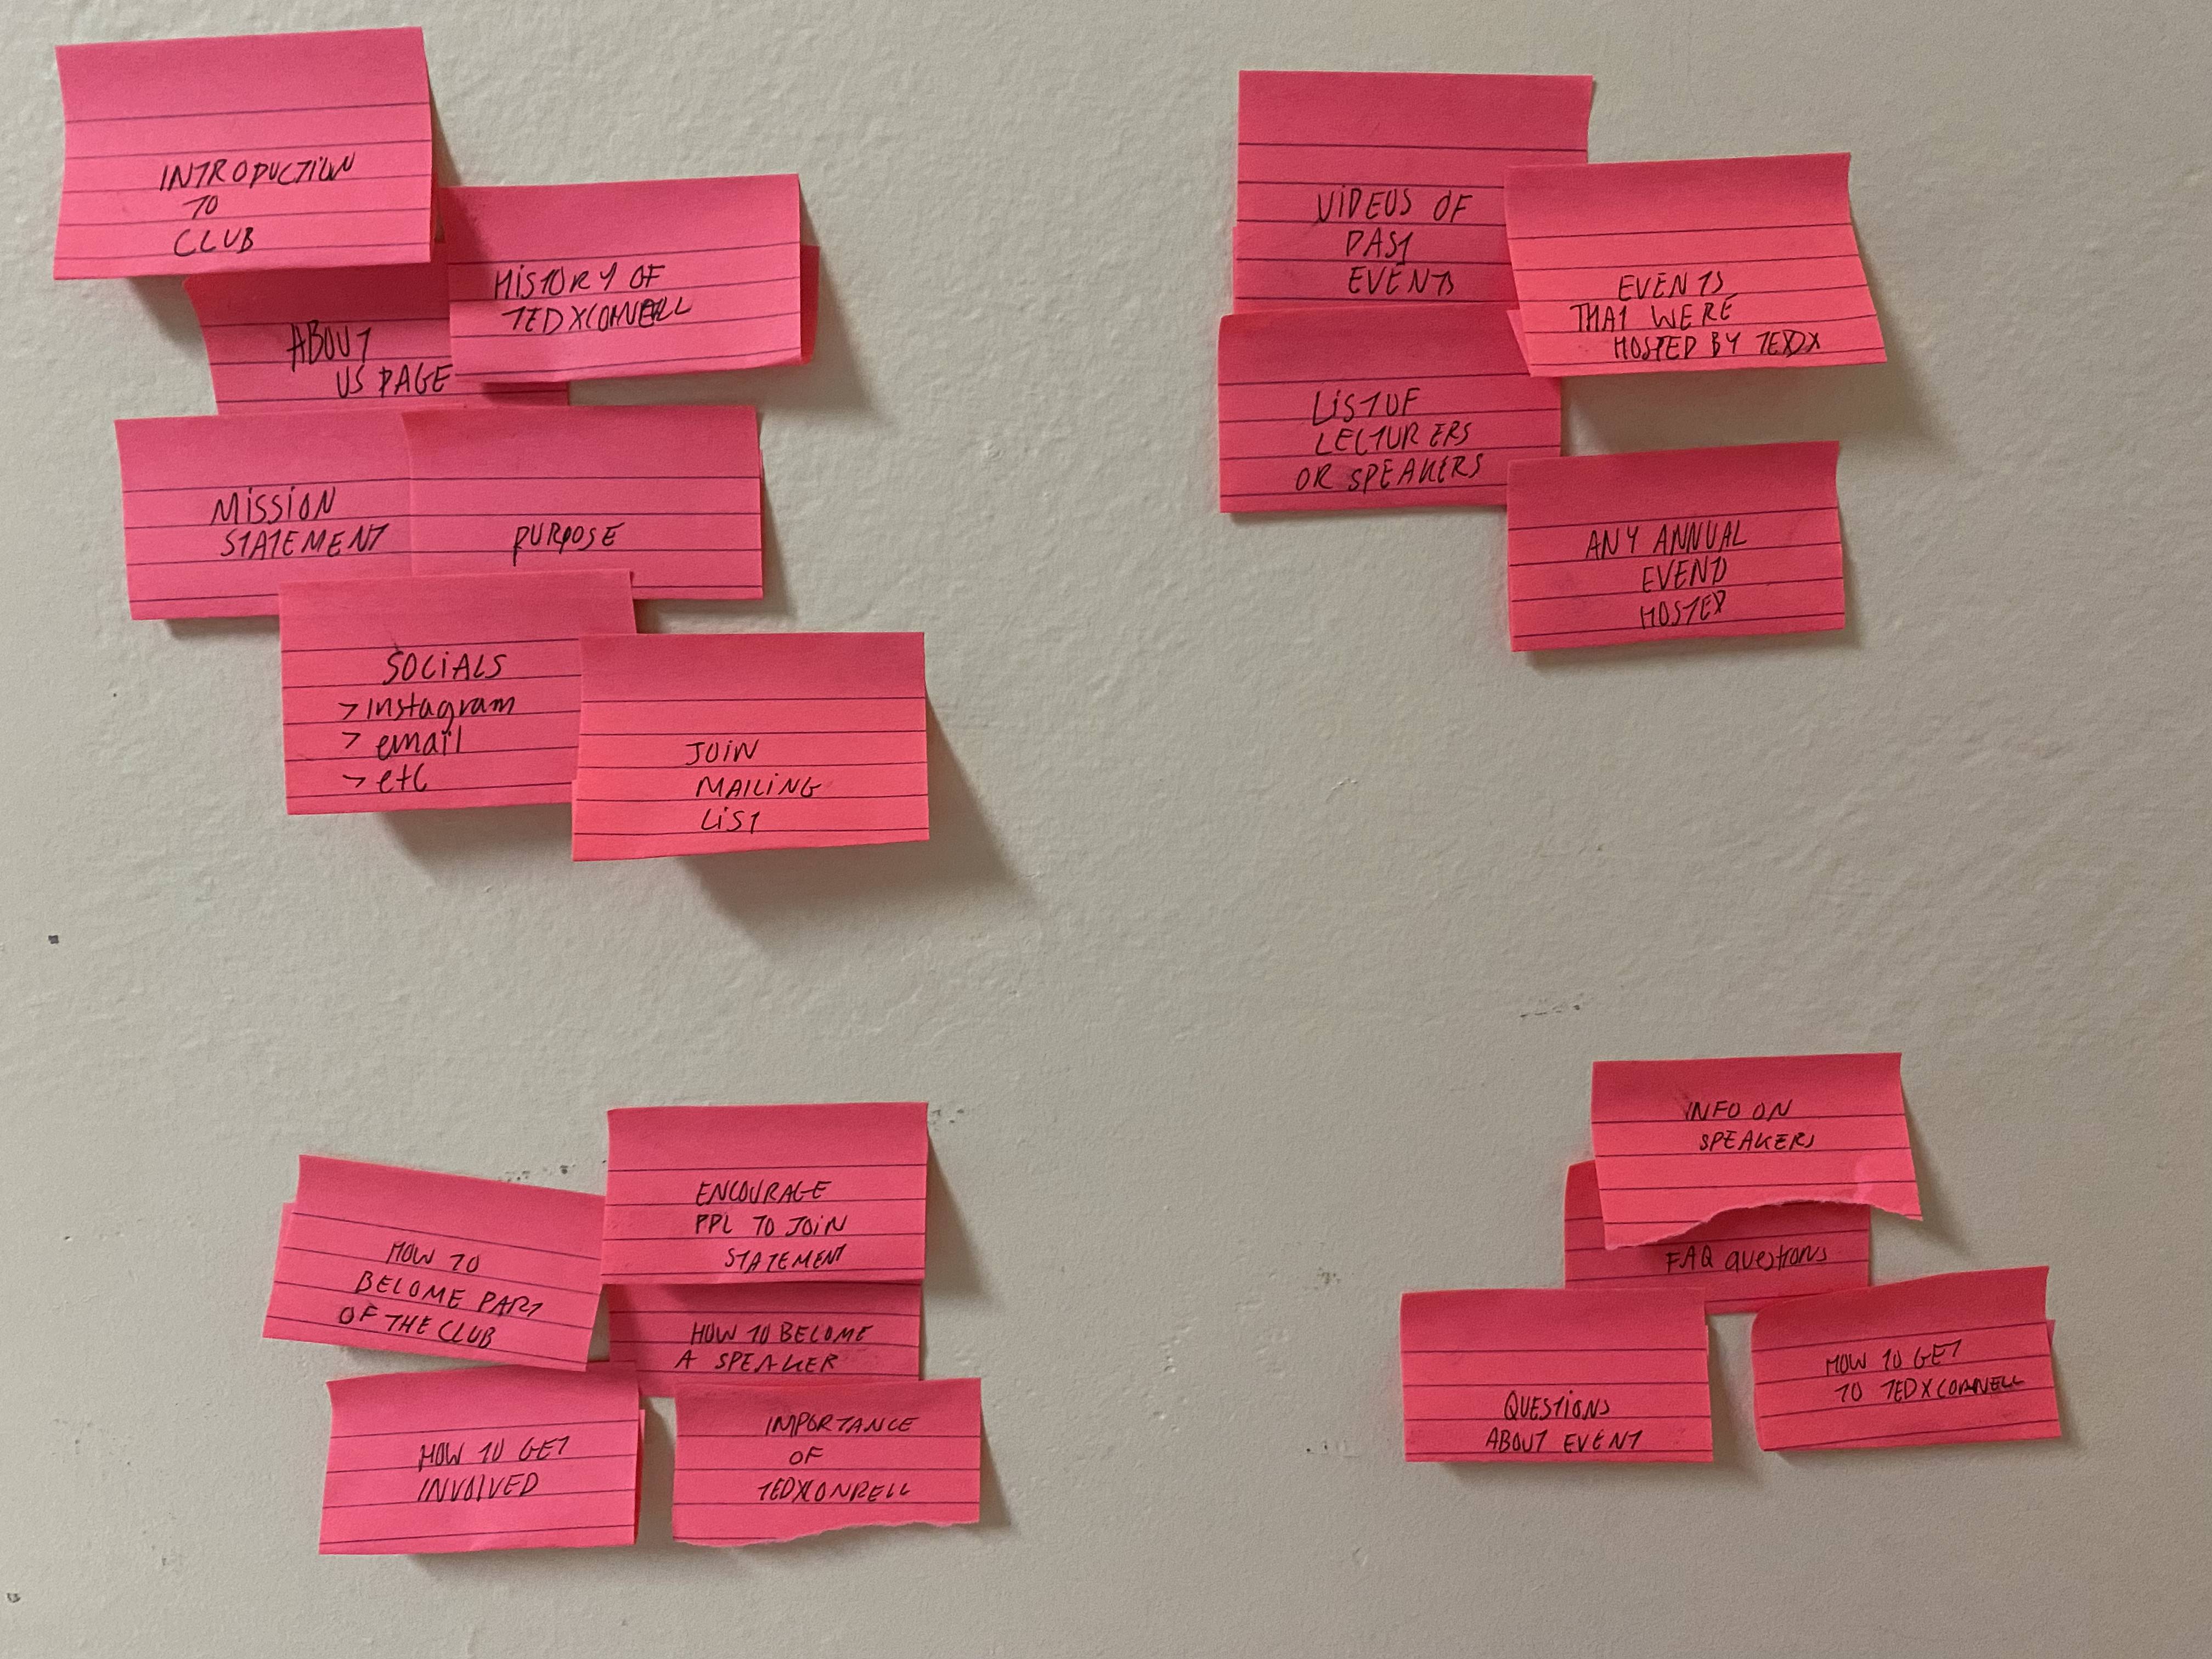 INTRODUCTION
TO
CLUB
HISTORY OF
TEDXCORNELL
ABOUT
US PAGE
MISSION
STATEMENT
PURPOSE
SOCIALS
> instagram
> email
> etc
JOIN
MAILING
LIST
VIDEOS OF
PAST
EVENTS
EVENTS
THAT WERE
HOSTED BY TEDX
LIST OF
LECTURERS
OR SPEAKERS
ANY ANNUAL
EVENTS
HOSTED
HOW TO
BECOME PART
OF THE CLUB
ENCOURAGE
PPL TO JOIN
STATEMENT
HOW TO BECOME
A SPEAKER
HOW TO GET
INVOLVED
IMPORTANCE
OF
TEDXCONRELL
INFO ON
SPEAKERS
FAQ questions
QUESTIONS
ABOUT EVENT
HOW TO GET
TO TEDXCORNELL